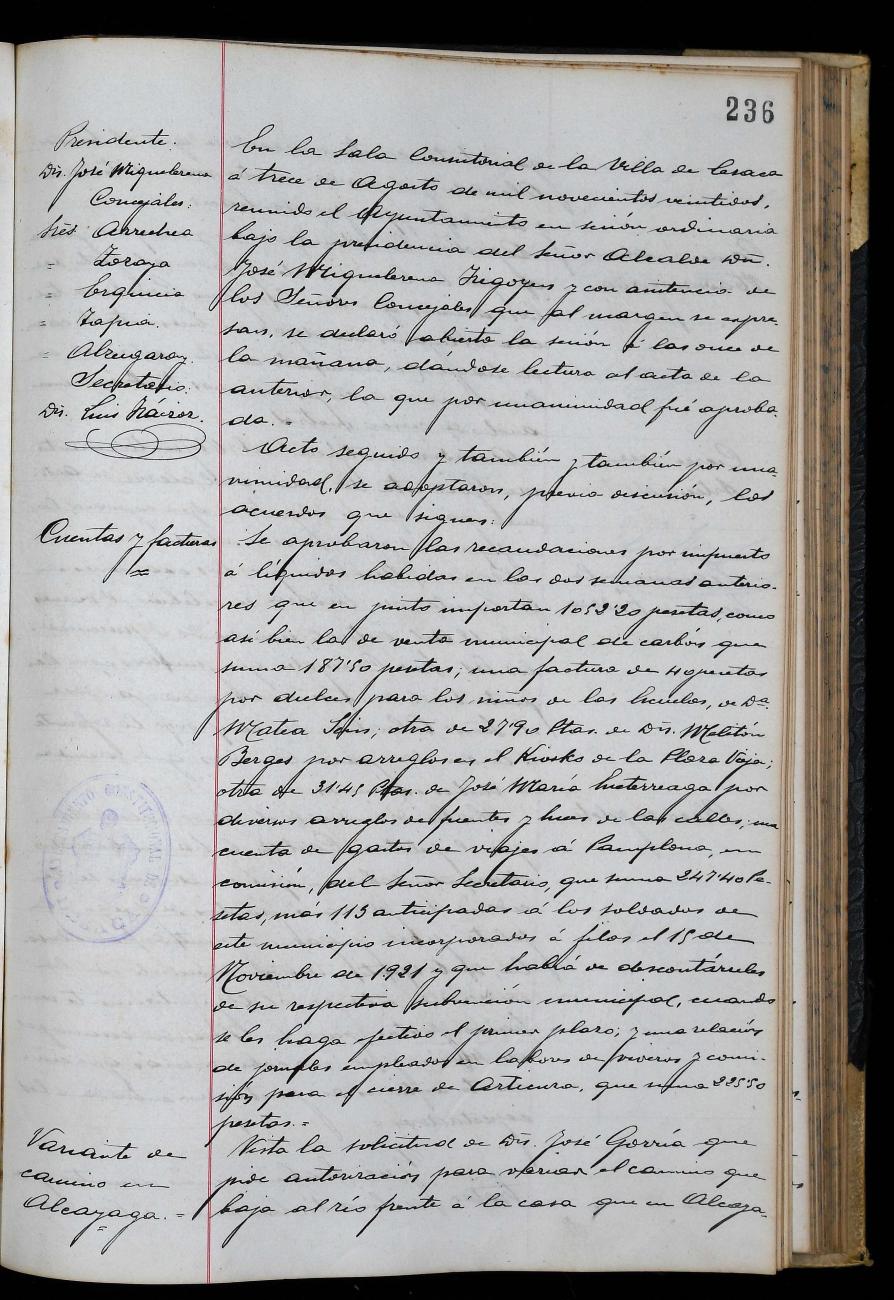 236
Presidente.
Dn. José Miguelerena
Concejales:
Sres Arrechea
" Zoraya
" Erquicia
" Tapia
" Alzugaray
Secretario:
Dn. Luis
En la Sala Consistorial de la Villa de Lesaca
á trece de Agosto de mil novecientos veintidos,
reunido el Ayuntamiento en sesión ordinaria
bajo la presidencia del Señor Alcalde Dn.
José Miguelerena Irigoyen y con asistencia de
los Señores Concejales que al margen se expre-
san, se declaró abierta la sesión á las once de
la mañana, dándose lectura al acta de la
anterior, la que por unanimidad fué aproba-
da.
Acto seguido y también y también por una-
nimidad, se adoptaron, previa discusión, los
acuerdos que siguen:
Cuentas y facturas
Se aprobaron las recaudaciones por impuesto
á líquidos habidas en las dos semanas anterio-
res que en junto importan 1052'20 pesetas, como
así bien la de venta municipal de carbón que
suma 187'50 pesetas; una factura de 40 pesetas
por dulces para los niños de las Escuelas, de Dª
Matea Sein; otra de 27'90 Ptas. de Dn. Melitón
Berges por arreglos en el Kiosko de la Plaza Vieja;
otra de 31'45 Ptas. de José María por
diversos arreglos de fuentes y luces de las calles; una
cuenta de gastos de viajes á Pamplona, en
comisión, del Señor Secretario, que suma 247'40 Pe-
setas, más 113 anticipadas á los soldados de
este municipio incorporados á filas el 15 de
Noviembre de 1921 y que habrá de descontárseles
de su respectiva subvención municipal, cuando
se les haga efectivo el primer plazo; y una relación
de jornales empleados en labores de viveros y comi-
sión para el cierre de Articuza, que suma 225'50
pesetas.=
Variante de
camino en
Alcayaga.=
Vista la solicitud de Dn. José Gorría que
pide autorización para variar el camino que
baja al río frente á la casa que en Alcaya-
AYUNTAMIENTO CONSTITUCIONAL DE